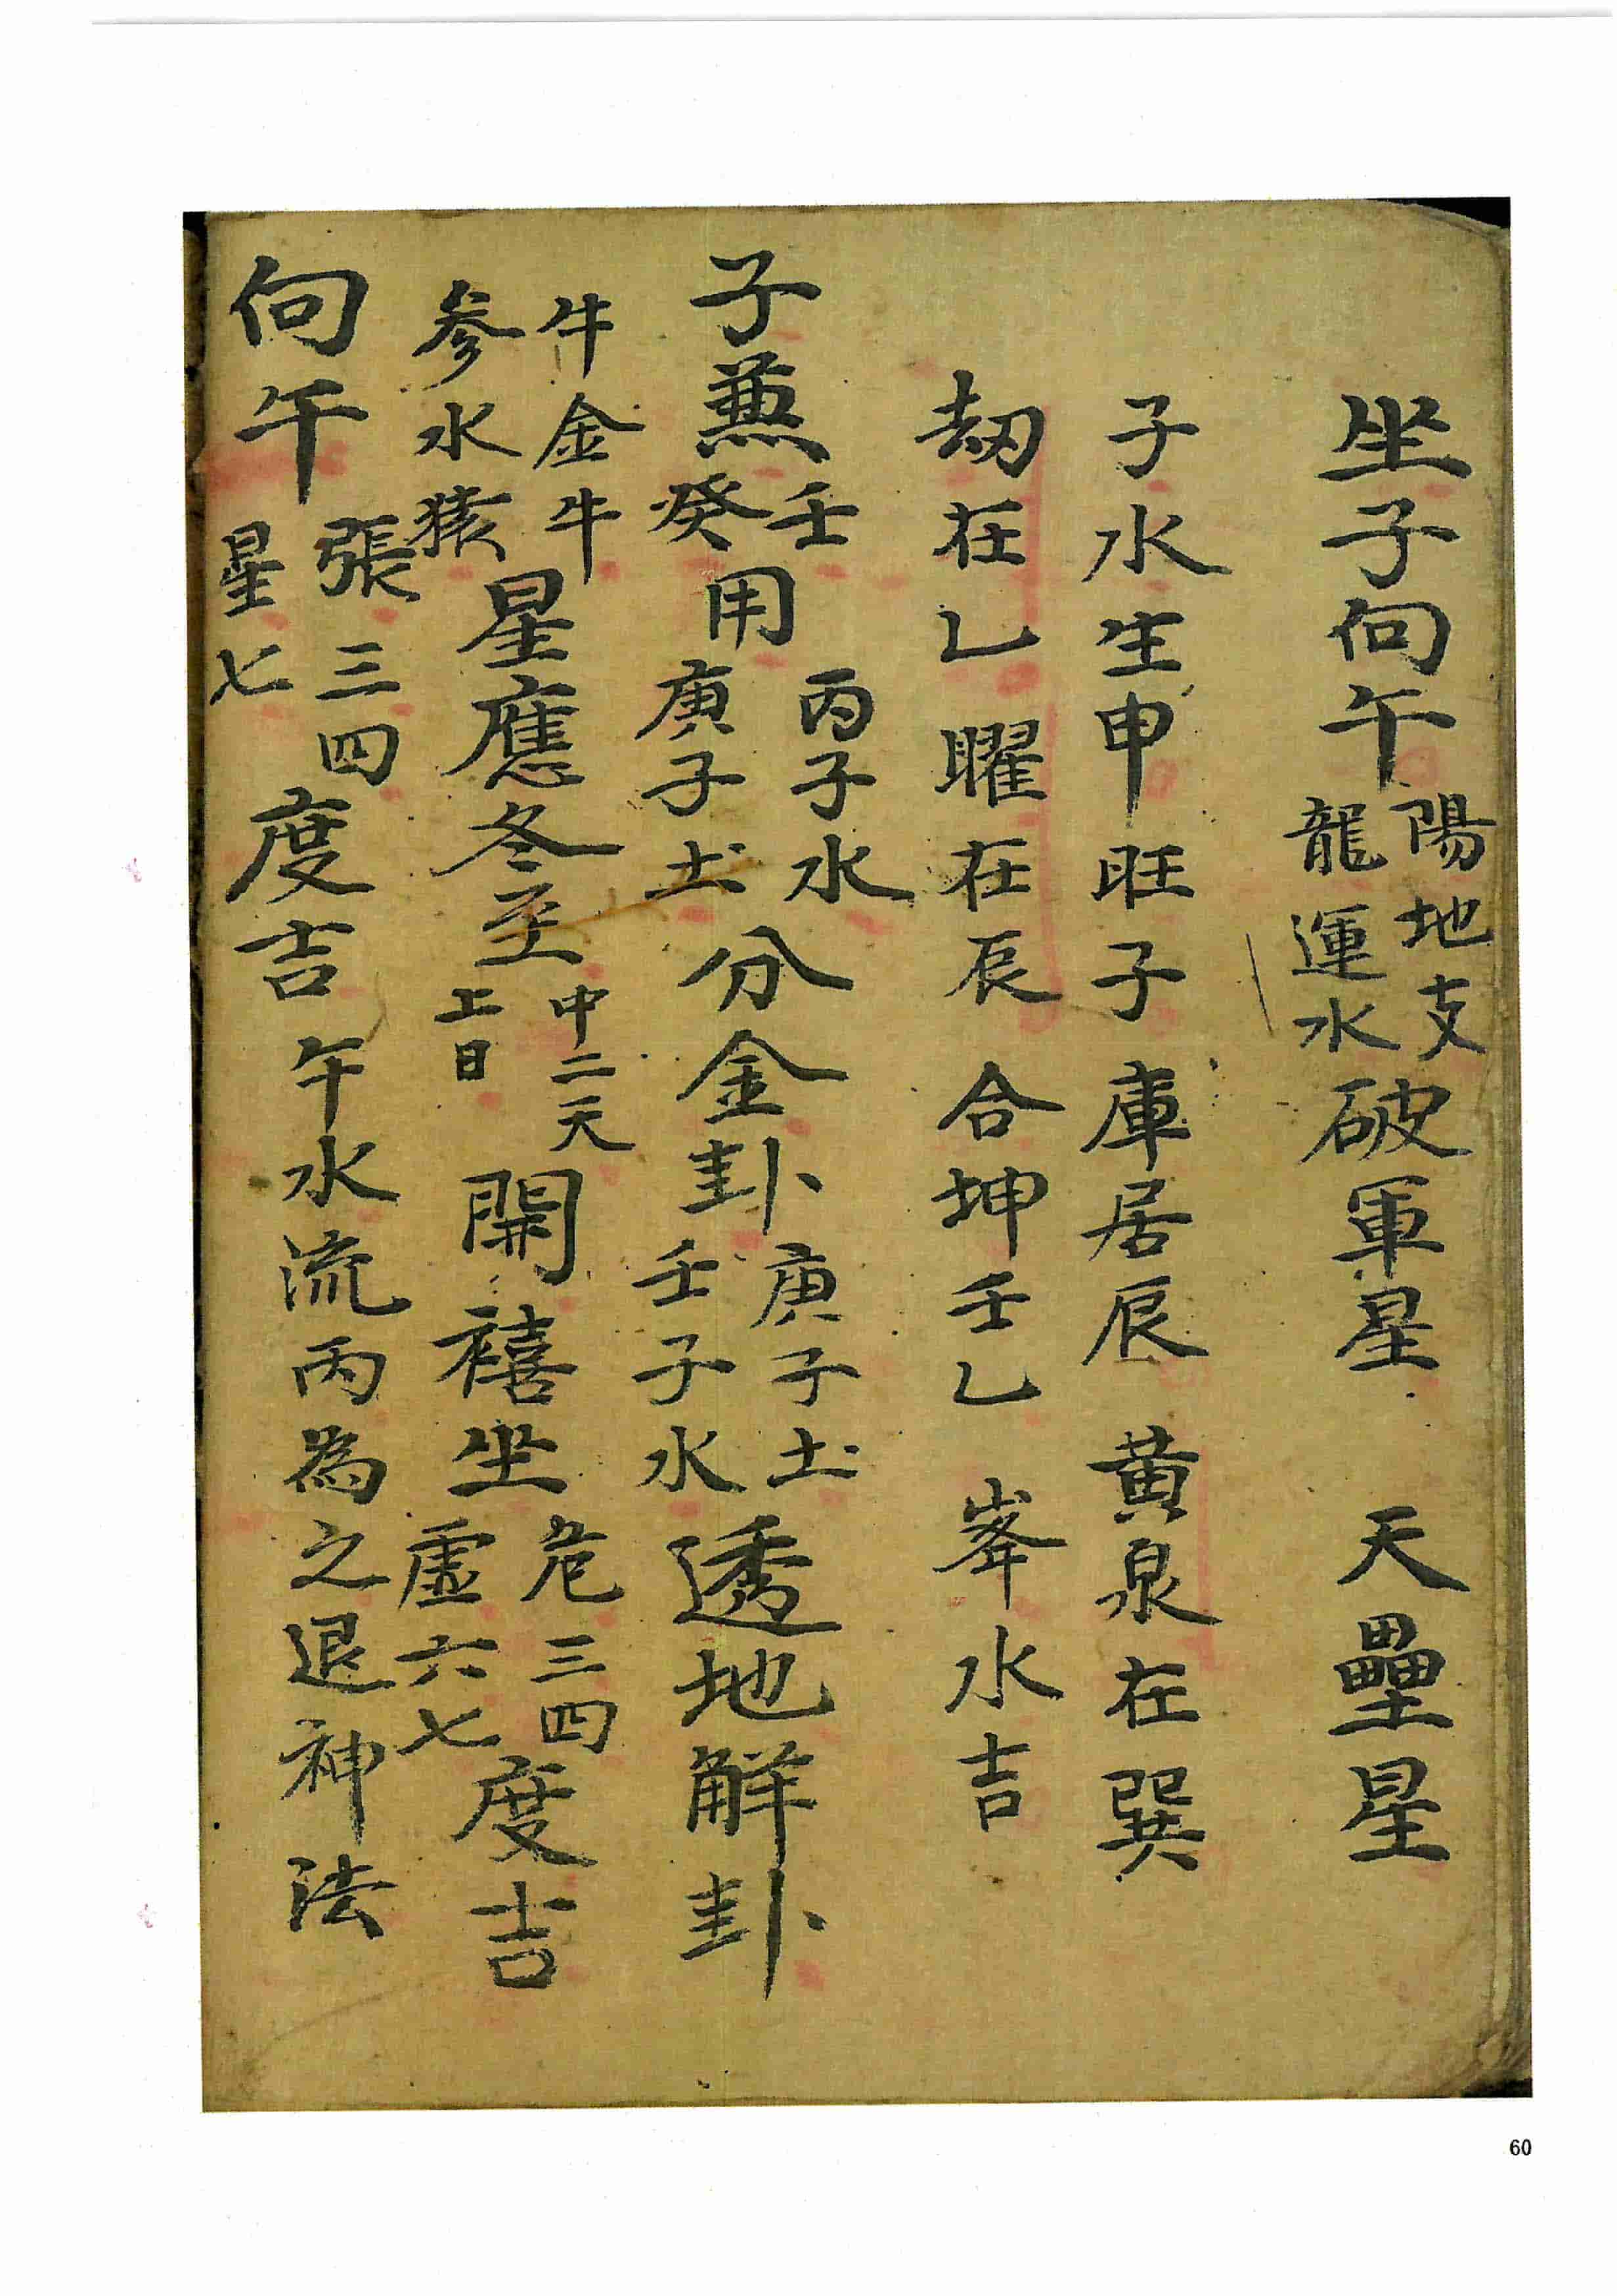 坐子向午陽地支龍運水破軍星 天壘星
子水生申旺子庫居辰 黃泉在巽
劫在乙曜在辰 合坤壬乙 峯水吉
子兼壬癸用丙子水庚子土分金卦庚子土壬子水透地解卦
牛金牛参水猿星應冬至中二天上日開禧坐危三四虛六七度吉
向午張三四星七度吉午水流丙為之退神法
60